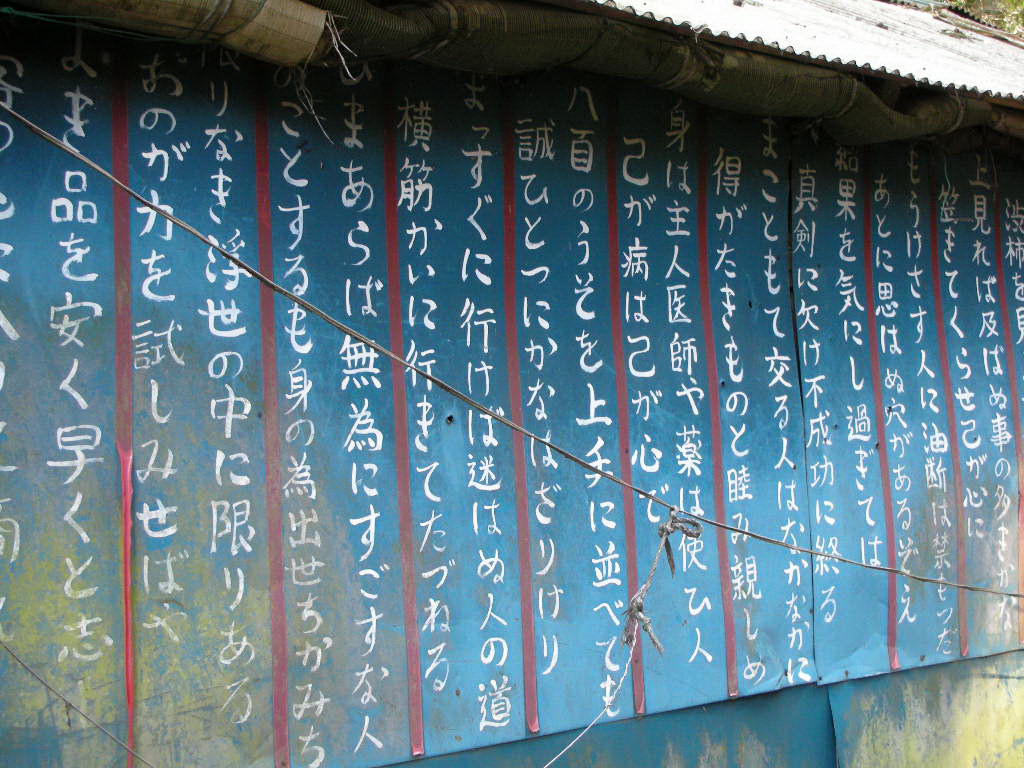 渋柿を見
上見れば及ばぬ事の多きかな
笠きてくらせ己が心に
もうけさす人に油断は禁もつだ
あとに思はぬ穴があるぞえ
結果を気にし過ぎては
真剣に欠け不成功に終る
まこともて交る人はなかなかに
得がたきものと睦み親しめ
身は主人医師や薬は使ひ人
己が病は己が心で
八百のうそを上手に並べても
誠ひとつにかなはざりけり
まっすぐに行けば迷はぬ人の道
横筋かいに行きてたづねる
ひまあらば無為にすごすな人
のことするも身の為出世ちかみち
限りなき浮世の中に限りある
おのが力を試しみせばや
よき品を安く早くと志